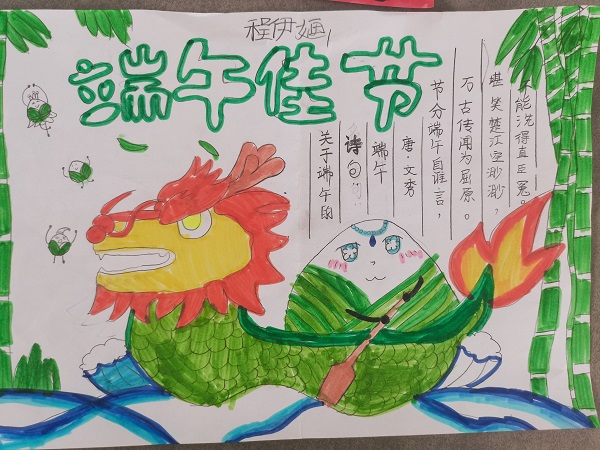 程伊婳
端午佳节
关于端午的
诗句
端午
唐·文秀
节分端午自谁言，
万古传闻为屈原。
堪笑楚江空渺渺，
不能洗得直臣冤。